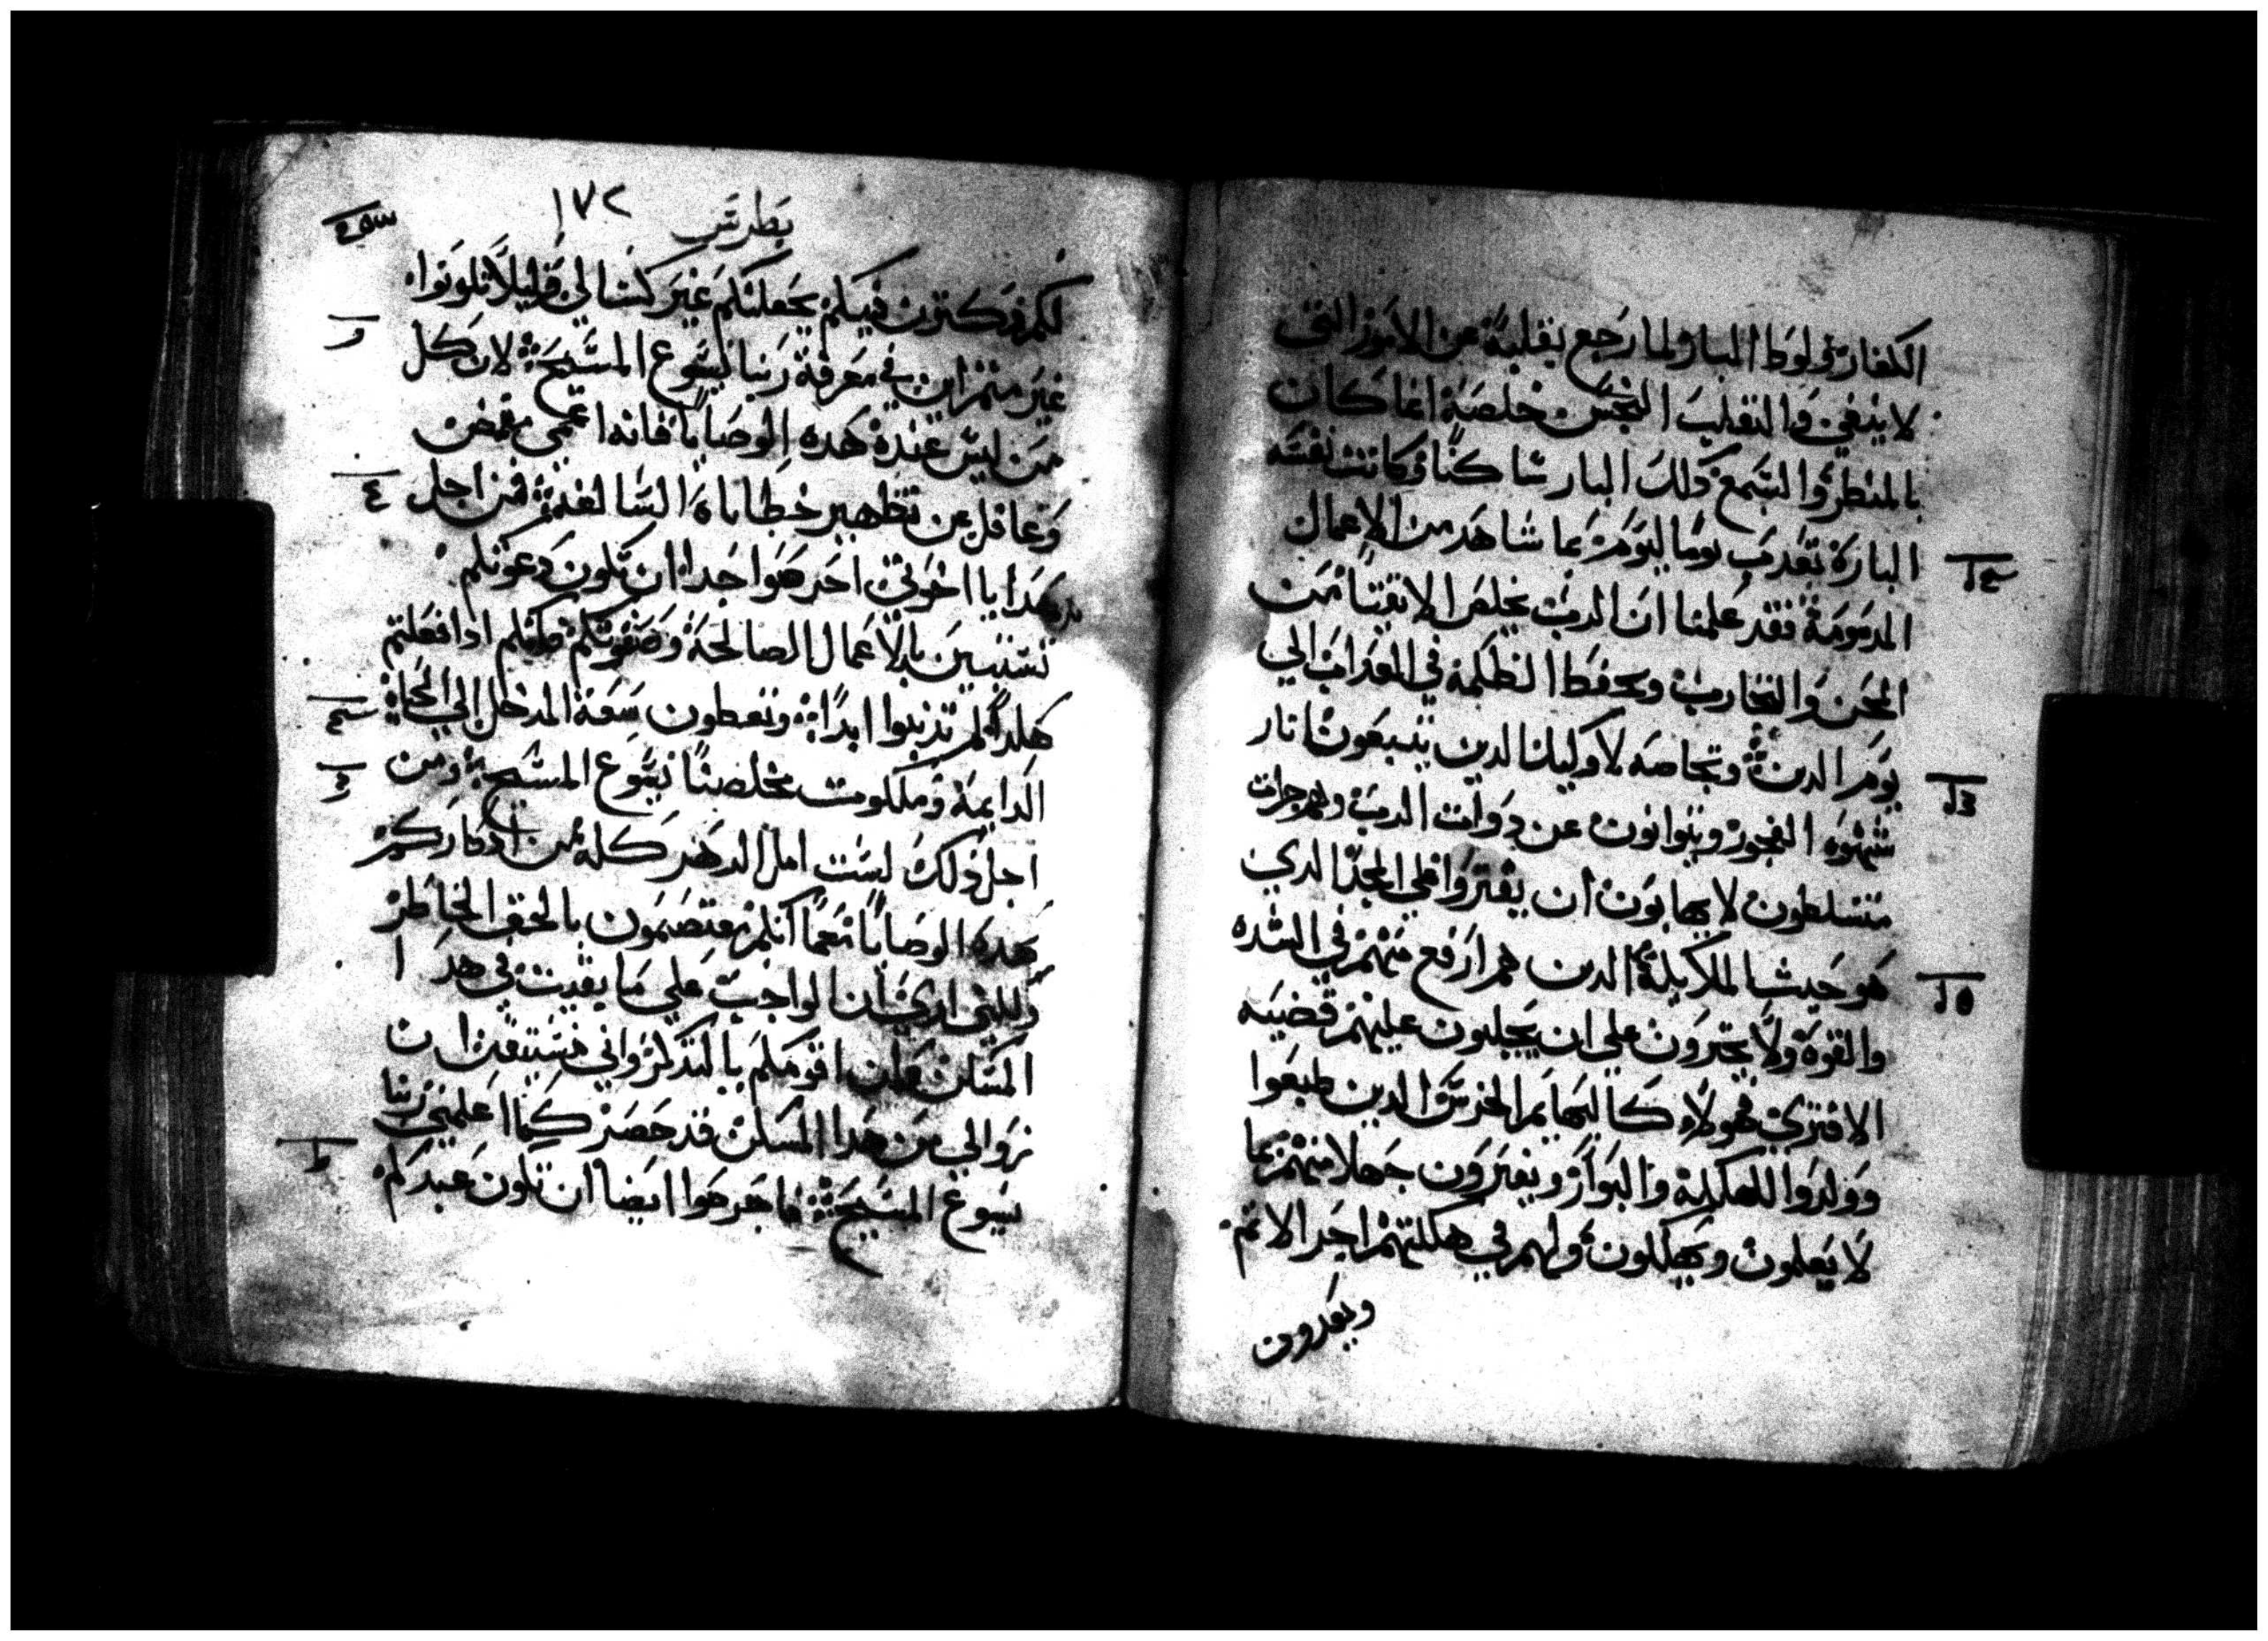 الكفار ولوط البار لما رجع بقلبه عن الامور التي
لا ينبغي والتقلب النجس خلصه انما كان
بالمنظر والسمع ذلك البار ساكنا وكانت نفسه
البارة تعذب يوما ليوم بما شاهد من الاعمال
المذمومة فقد علمنا ان الرب يخلص الاتقيا من
المحن والتجارب ويحفظ الظلمه في العذاب الي
يوم الدين وبخاصه لاوليك الدين يتبعون اتار
شهوه الفجور ويتوانون عن ربوات الرب
متسلطون لا يهابون ان يفتروا علي المجد الدي
هو حيث الملايكة الدين هم ارفع منهم في الشده
والقوه ولا يجترون علي ان يجلبون عليهم قضيه
الافتري فهولاء كالبهايم الخرس الدين طبعوا
وولدوا للهلكة والبوار ويفترون جهلا منهم بما
لا يعلمون ويهلكون ولهم في هلكتهم اجر الاثم
ويعدون
بطرس ١٧٢
لكم فكترت فيكم يجعلنكم غير كسالي ولا تكونوا
غير مثمرين في معرفة ربنا يسوع المسيح لان كل
من ليس عنده هده الوصايا فانه اعمي مغمض
وغافل عن تطهير خطاياه السالفة فمن اجل
هدا يا اخوتي احرصوا جدا ان تكون دعوتكم
تستبين بالاعمال الصالحة وصفوتكم فانكم ادا فعلتم
هكدا لم تذنبوا ابدا وتعطون سعة المدخل الي الحياة
الدايمة وملكوت مخلصنا يسوع المسيح ومن
اجل ذلك لست امل الدهر كله من ادكاركم
هده الوصايا نعما انكم معتصمون بالحق الحاضر
ولكني اري ان الواجب علي ما بقيت في هدا
المسكن ان اقومكم بالتذكر واني مستيقن ان
زوالي من هدا المسكن قد حضر كما اعلمني ربنا
يسوع المسيح فاحرصوا ايضا ان تكون عندكم